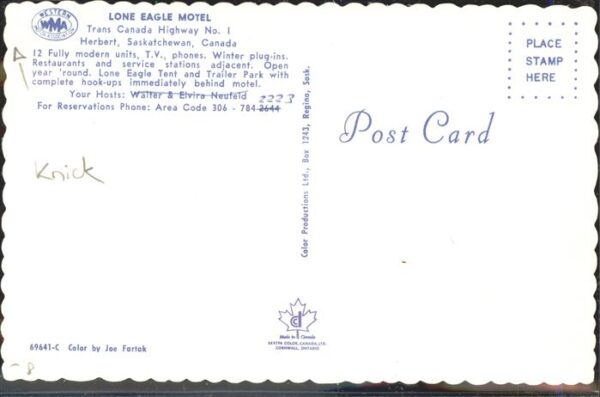 WESTERN
WMA
MOTEL ASSOCIATION
LONE EAGLE MOTEL
Trans Canada Highway No. 1
Herbert, Saskatchewan, Canada
12 Fully modern units, T.V., phones. Winter plug-ins.
Restaurants and service stations adjacent. Open
year 'round. Lone Eagle Tent and Trailer Park with
complete hook-ups immediately behind motel.
Your Hosts: Walter & Elvira Neufeld
2223
For Reservations Phone: Area Code 306 - 784-2644
Knick
Color Productions Ltd., Box 1243, Regina, Sask.
PLACE
STAMP
HERE
Post Card
Made in Canada
DEXTER COLOR CANADA LTD.
CORNWALL, ONTARIO
69641-C Color by Joe Fartak
8